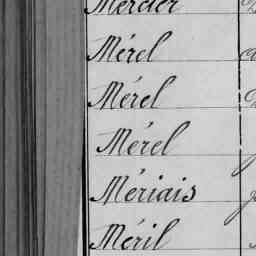 Mercier
Mérel
Mérel
Mérel
Mériais
Méril